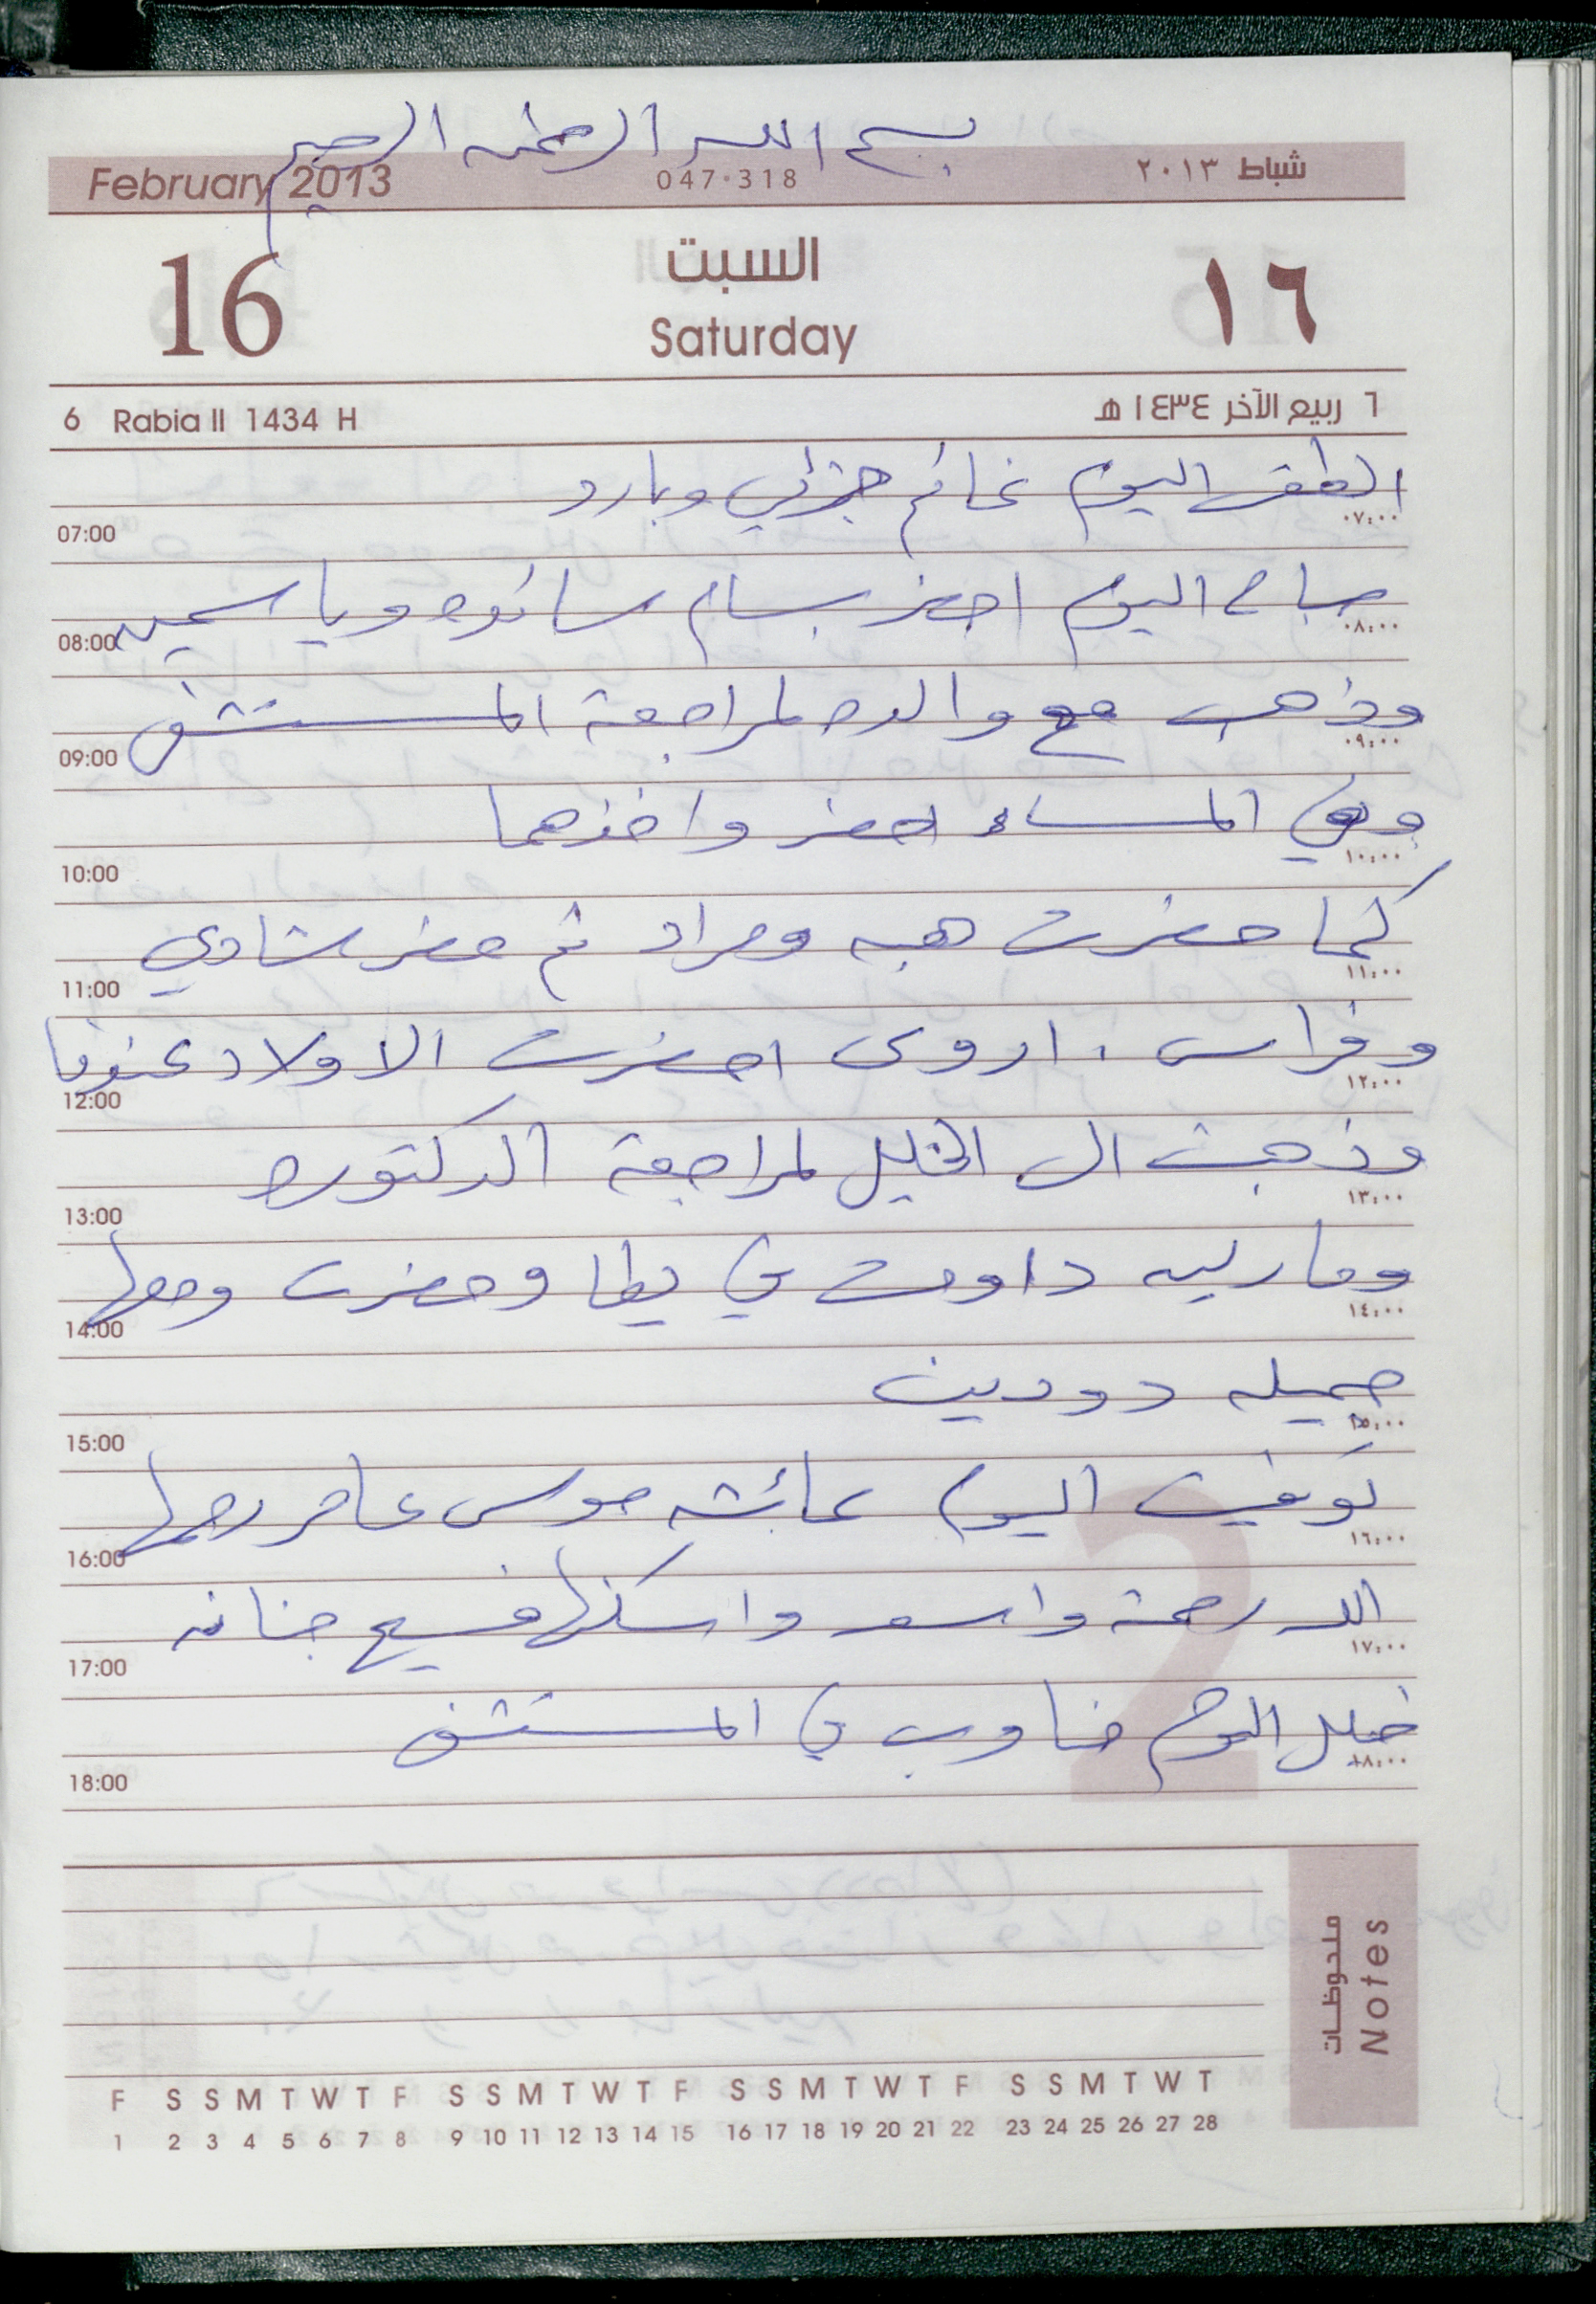 بسم الله الرحمن الرحيم
February 2013 047-318 شباط ٢٠١٣
16 السبت ١٦
Saturday
6 Rabia II 1434 H ٦ ربيع الآخر ١٤٣٤ هـ
الطقس اليوم غائم جزئي وبارد
07:00 ٠٧:٠٠
صباح اليوم احضر بسام سائده وياسمين
08:00 ٠٨:٠٠
وذهب مع والده لمراجعة المستشفى
09:00 ٠٩:٠٠
وفي المساء حضر واخذهما
10:00 ١٠:٠٠
كما حضرت هبه ومراد ثم حضر شادي
11:00 ١١:٠٠
وفراس . اروى احضرت الاولاد عندنا
12:00 ١٢:٠٠
وذهبت الى الخليل لمراجعة الدكتوره
13:00 ١٣:٠٠
وماريه داومت في يطا وحضرت ومعها
14:00 ١٤:٠٠
جميله دودين
15:00 ١٥:٠٠
توفيت اليوم عائشه موسى عامر رحمها
16:00 ١٦:٠٠
الله رحمة واسعه واسكنها فسيح جنانه
17:00 ١٧:٠٠
خليل اليوم مناوب في المستشفى
18:00 ١٨:٠٠
2
ملحوظات
Notes
F S S M T W T F S S M T W T F S S M T W T F S S M T W T
1 2 3 4 5 6 7 8 9 10 11 12 13 14 15 16 17 18 19 20 21 22 23 24 25 26 27 28